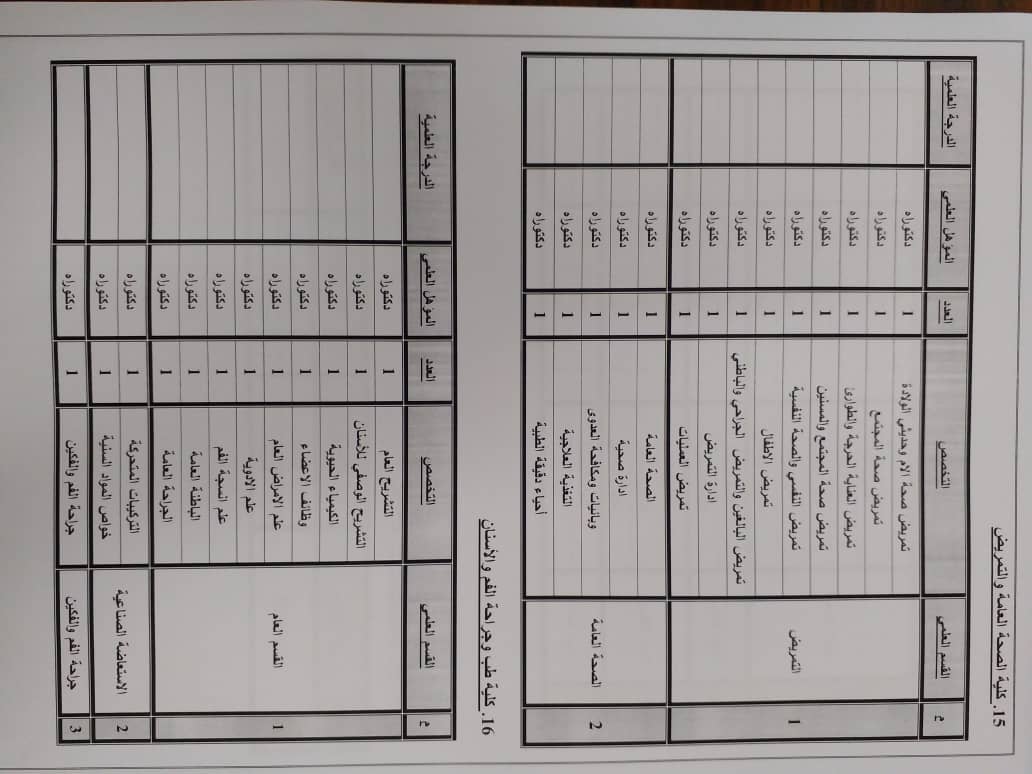 15. كلية الصحة العامة والتمريض
م القسم العلمي التخصص العدد المؤهل العلمي الدرجة العلمية
تمريض صحة الام وحديثي الولادة 1 دكتوراه
تمريض صحة المجتمع 1 دكتوراه
تمريض العناية الحرجة والطوارئ 1 دكتوراه
تمريض صحة المجتمع والمسنين 1 دكتوراه
1 التمريض تمريض النفسي والصحة النفسية 1 دكتوراه
تمريض الاطفال 1 دكتوراه
تمريض البالغين والتمريض الجراحي والباطني 1 دكتوراه
ادارة التمريض 1 دكتوراه
تمريض العمليات 1 دكتوراه
الصحة العامة 1 دكتوراه
ادارة صحية 1 دكتوراه
2 الصحة العامة وبائيات ومكافحة العدوى 1 دكتوراه
التغذية العلاجية 1 دكتوراه
أحياء دقيقة الطبية 1 دكتوراه
16. كلية طب وجراحة الفم والأسنان
م القسم العلمي التخصص العدد المؤهل العلمي الدرجة العلمية
التشريح العام 1 دكتوراه
التشريح الوصفي للأسنان 1 دكتوراه
الكيمياء الحيوية 1 دكتوراه
وظائف الاعضاء 1 دكتوراه
1 القسم العام علم الامراض العام 1 دكتوراه
علم الادوية 1 دكتوراه
علم انسجة الفم 1 دكتوراه
الباطنة العامة 1 دكتوراه
الجراحة العامة 1 دكتوراه
2 الاستعاضة الصناعية التركيبات المتحركة 1 دكتوراه
خواص المواد السنية 1 دكتوراه
3 جراحة الفم والفكين جراحة الفم والفكين 1 دكتوراه